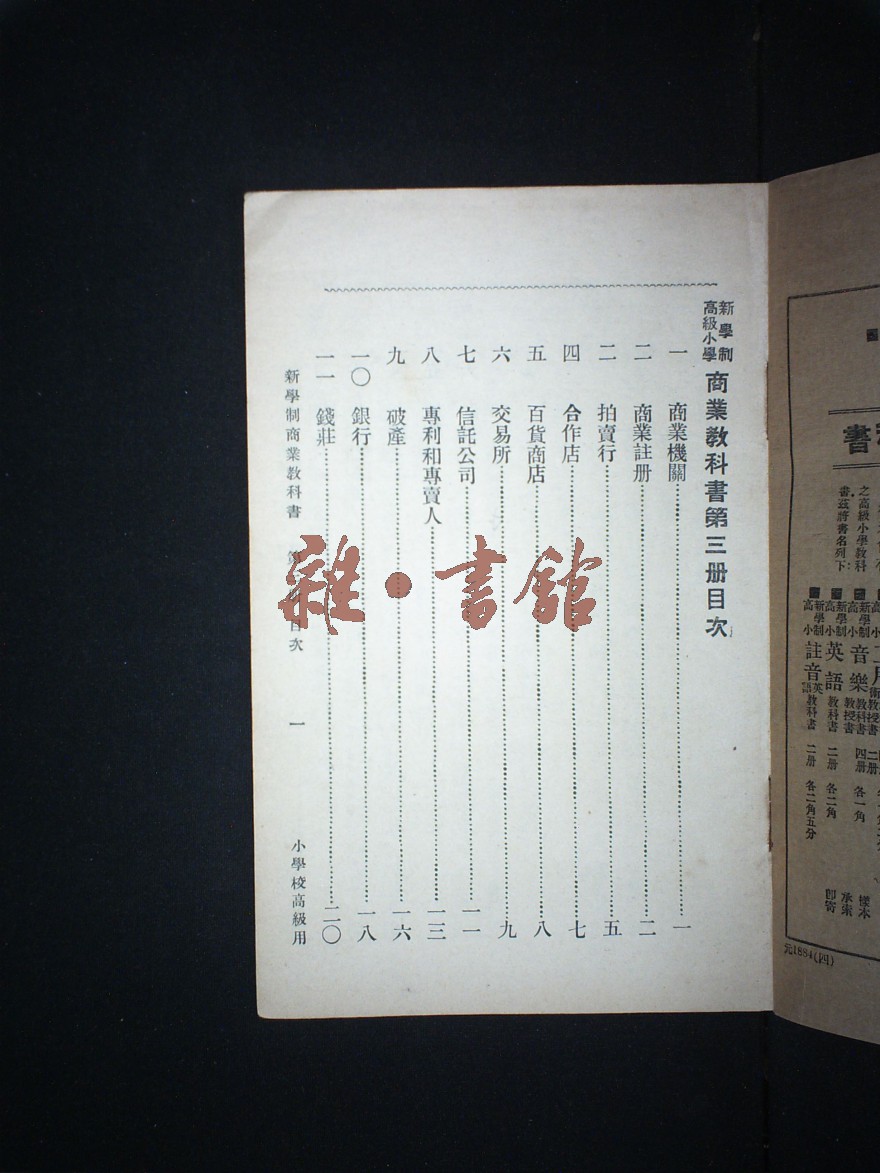 新學制
高級小學
商業教科書第三册目次
一 商業機關……一
二 商業註册……二
三 拍賣行……五
四 合作店……七
五 百貨商店……八
六 交易所……九
七 信託公司……一一
八 專利和專賣人……一三
九 破產……一六
一〇 銀行……一八
一一 錢莊……二〇
新學制商業教科書 目次 一 小學校高級用
雜·書館
書
之高級小學教科
書茲將書名列下:
新學制
高小
音樂
教科書 四册 各一角
教授書
新學制
高小
英語
教科書 二册 各二角
新學制
高小
註音
英語教科書 二册 各二角五分
樣本
承索
即寄
元1884(四)